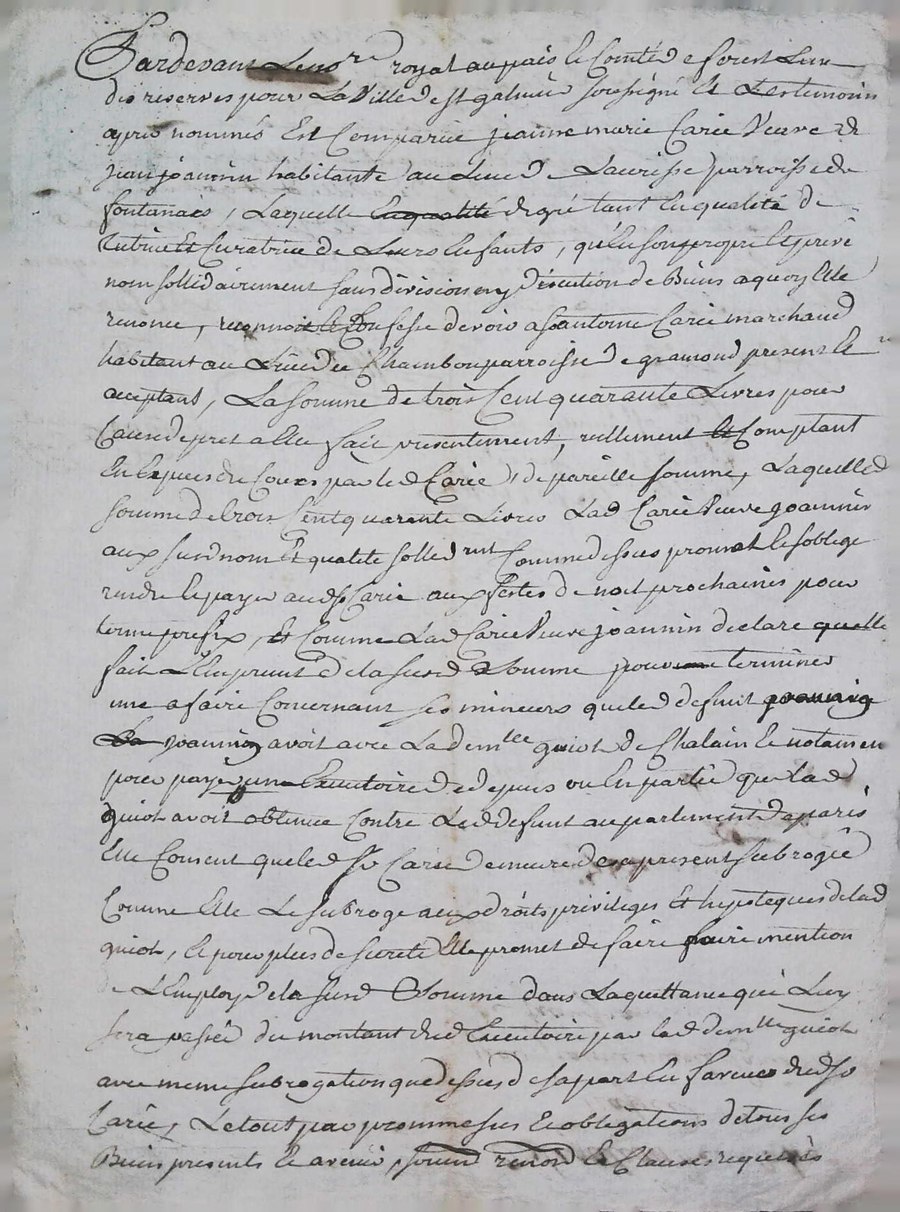 Pardevant Le no.re royal au païs le Comté de forest L'un
des reservés pour La Ville de st galmier soussigné Et Les temoins
apres nommés Est Comparüe jeanne marie Carie Veuve de
jean joannin habitante au Lieu de Laurisse parroisse de
fontanais, Laquelle En qualité de gré tant En qualité de
tutrice Et Curatrice de Leurs Enfants, qu'En son propre Et privé
nom sollidairement sans division ny discution de Biens a quoy Elle
renonce, reconnoit Et Confesse devoir a s.r antoine Carie marchand
habitant au Lieu du Chambon parroisse de gramond present Et
acceptant, La somme de trois Cent quarante Livres pour
Cause de pret a Elle fait presentement, réellement Et Comptant
En Especes de Cours par led Carie, de pareille somme, Laquelle
somme de trois Cent quarante Livres Lad Carie Veuve joannin
aux susd nom Et qualité sollid.ment Comme dessus promet Et soblige
rendre Et payer aud s.r Carie aux festes de noel prochaines pour
terme prefix, Et Comme Lad Carie Veuve joannin declare quelle
fait L'Emprunt de la susd Somme pour terminer
une afaire Concernant ses mineurs que led defunt
joannin avoit avec La dem.lle guiot de Chalain Et notamen
pour payer une Executoire de depens ou En partie que Lad
guiot avoit obtenue Contre Led defunt au parlement de paris
Elle Consent que led s.r Carie demeure des a present subrogé
Comme Elle Le subroge aux droits privileges Et hipoteques de lad
guiot, Et pour plus de sureté Elle promet de faire faire mention
de L'Employ de la susd Somme dans La quittance qui Luy
sera passée du montant dud Executoire par lad dem.lle guiot
avec meme subrogation que dessus de sa part En faveur dud s.r
Carie, Le tout par promesses Et obligations de tous ses
Biens presents Et avenir, soumd renond Et Clauses requises